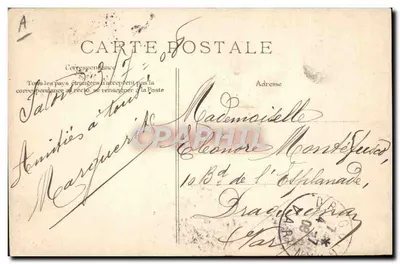 A
CARTE POSTALE
Correspondance
Tous les pays étrangers n'acceptent pas la
correspondance au recto, se renseigner à la Poste
Adresse
7-08
Amitiés à tous
Marguerite
Mademoiselle
Eléonore
10 Bd de l'Esplanade,
Draguignan
Var